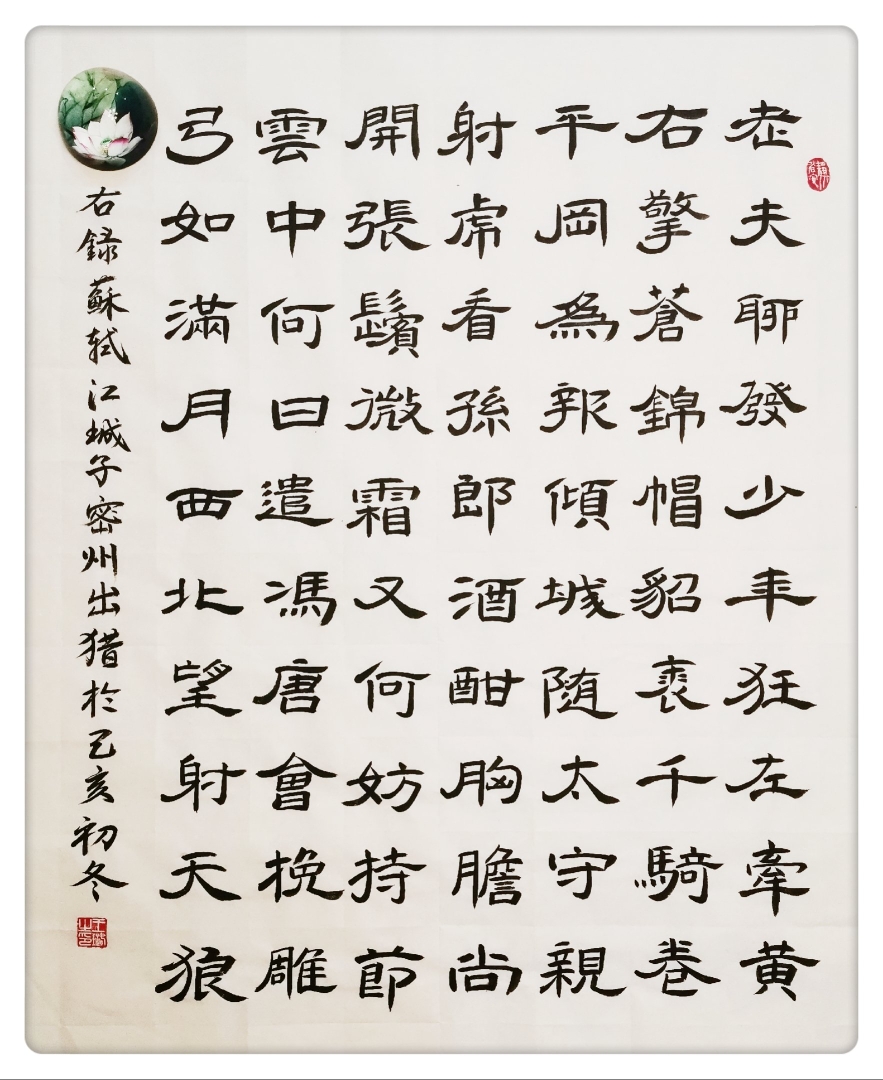 老夫聊發少年狂左牽黃
右擎蒼錦帽貂裘千騎卷
平岡為報傾城随太守親
射虎看孫郎酒酣胸膽尚
開張鬢微霜又何妨持節
雲中何日遣馮唐會挽雕
弓如滿月西北望射天狼
右録蘇軾江城子密州出猎於己亥初冬